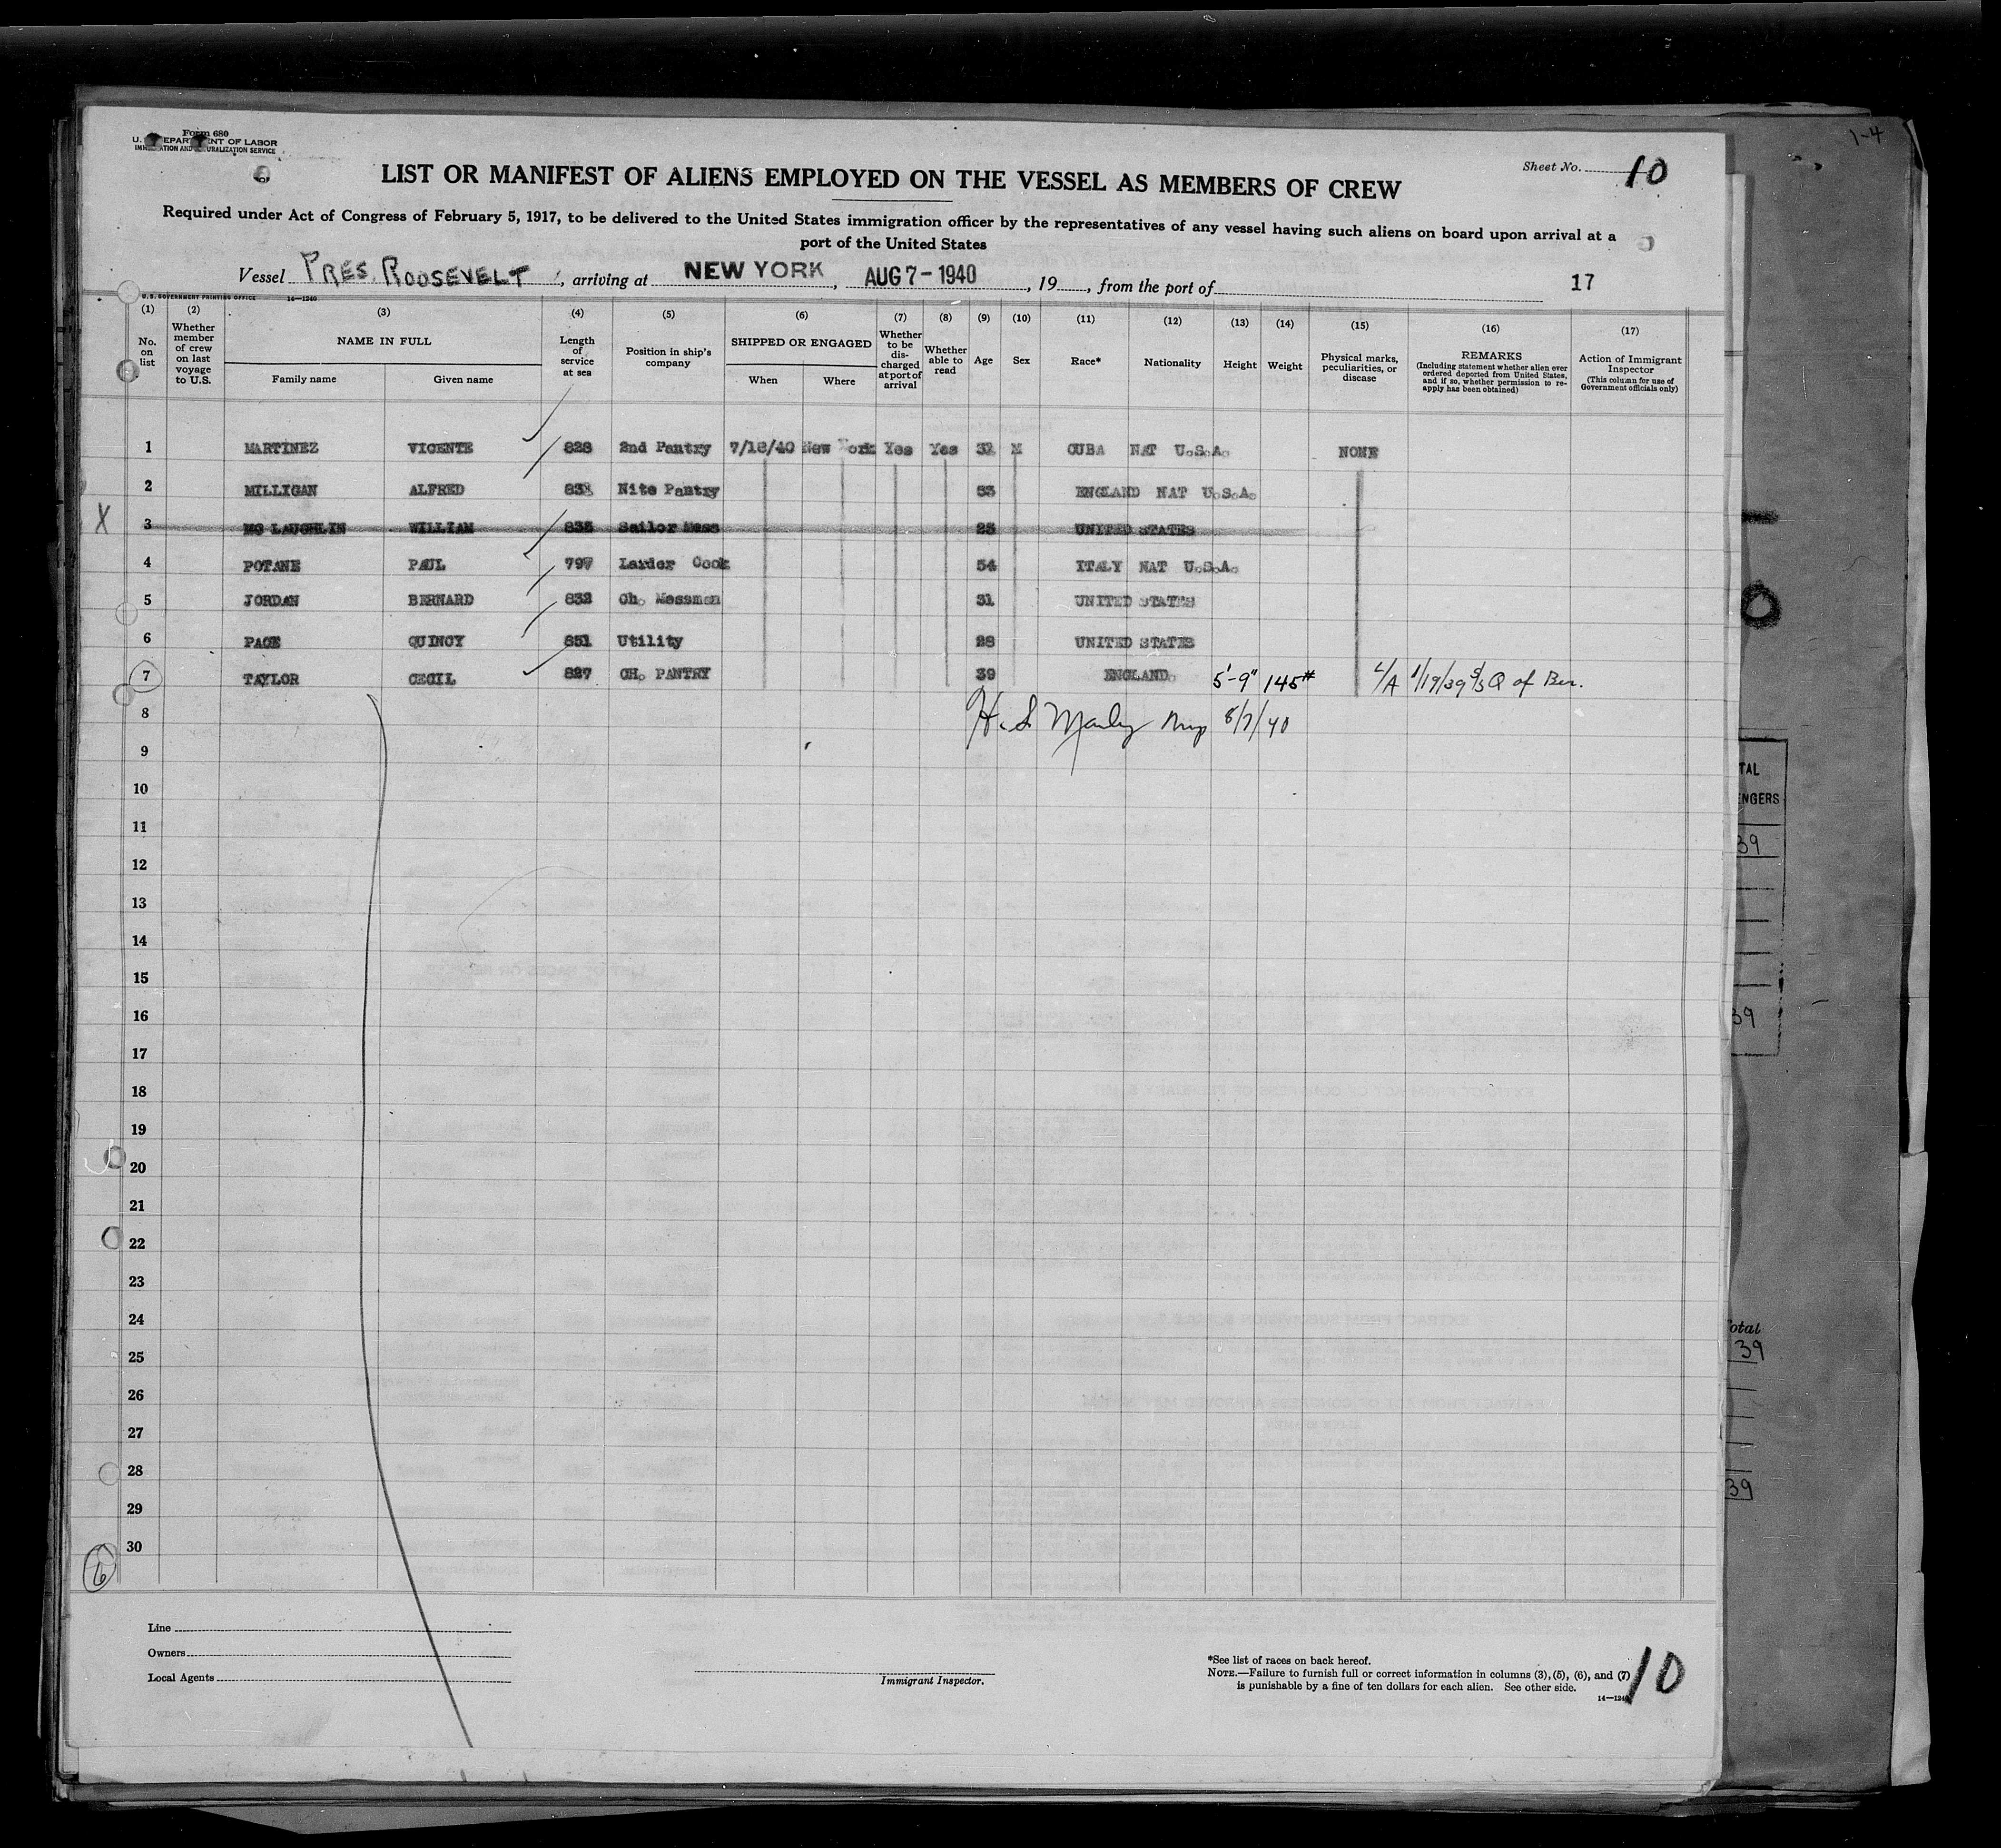 1-4
Form 680
U. S. DEPARTMENT OF LABOR
IMMIGRATION AND NATURALIZATION SERVICE
Sheet No. 10
LIST OR MANIFEST OF ALIENS EMPLOYED ON THE VESSEL AS MEMBERS OF CREW
Required under Act of Congress of February 5, 1917, to be delivered to the United States immigration officer by the representatives of any vessel having such aliens on board upon arrival at a
port of the United States
Vessel PRES. ROOSEVELT, arriving at NEW YORK, AUG 7 - 1940, 19, from the port of 17
U.S. GOVERNMENT PRINTING OFFICE 14—1240
(1) (2) (3) (4) (5) (6) (7) (8) (9) (10) (11) (12) (13) (14) (15) (16) (17)
No. on list
Whether member of crew on last voyage to U.S.
NAME IN FULL
Family name Given name
Length of service at sea
Position in ship's company
SHIPPED OR ENGAGED
When Where
Whether to be discharged at port of arrival
Whether able to read
Age
Sex
Race*
Nationality
Height
Weight
Physical marks, peculiarities, or disease
REMARKS
(Including statement whether alien ever ordered deported from United States, and if so, whether permission to re-apply has been obtained)
Action of Immigrant Inspector
(This column for use of Government officials only)
1 MARTINEZ VICENTE 828 2nd Pantry 7/18/40 New York Yes Yes 32 M CUBA NAT U.S.A. NONE
2 MILLIGAN ALFRED 838 Nite Pantry 53 ENGLAND NAT U.S.A.
X 3 MC LAUGHLIN WILLIAM 835 Sailor Mess 23 UNITED STATES
4 POTANE PAUL 797 Larder Cook 54 ITALY NAT U.S.A.
5 JORDAN BERNARD 832 Ch. Messman 31 UNITED STATES
6 PAGE QUINCY 851 Utility 28 UNITED STATES
7 TAYLOR CECIL 827 CH. PANTRY 39 ENGLAND. 5'-9" 145# L/A 1/19/39 S/S Q of Ber.
8 H. S. Manly Insp 8/7/40
9
10
11
12
13
14
15
16
17
18
19
20
21
22
23
24
25
26
27
28
29
30
6
TAL
ENGERS
39
39
otal
39
39
Line
Owners
Local Agents
Immigrant Inspector.
*See list of races on back hereof.
NOTE.—Failure to furnish full or correct information in columns (3), (5), (6), and (7)
is punishable by a fine of ten dollars for each alien. See other side.
14—1240
10